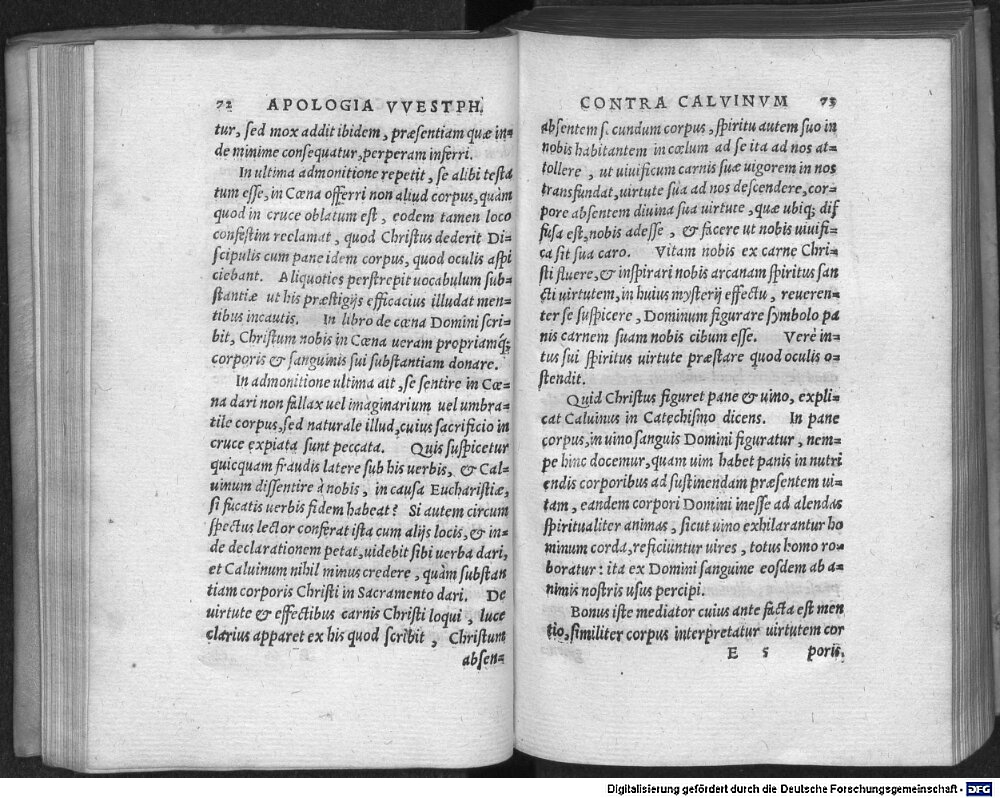 72 APOLOGIA VVESTPH.
tur, sed mox addit ibidem, præsentiam quæ in=
de minime consequatur, perperam inferri.
In ultima admonitione repetit, se alibi testa
tum esse, in Cœna offerri non aliud corpus, quàm
quod in cruce oblatum est, eodem tamen loco
confestim reclamat, quod Christus dederit Di=
scipulis cum pane idem corpus, quod oculis aspi
ciebant. Aliquoties perstrepit uocabulum sub=
stantiæ ut his præstigijs efficacius illudat men=
tibus incautis. In libro de cœna Domini scri=
bit, Christum nobis in Cœna ueram propriamq́;
corporis & sanguinis sui substantiam donare.
In admonitione ultima ait, se sentire in Cœ=
na dari non fallax uel imaginarium uel umbra=
tile corpus, sed naturale illud, cuius sacrificio in
cruce expiata sunt peccata. Quis suspicetur
quicquam fraudis latere sub his uerbis, & Cal=
uinum dissentire à nobis, in causa Eucharistiæ,
si fucatis uerbis fidem habeat? Si autem circum
spectus lector conferat ista cum alijs locis, & in=
de declarationem petat, uidebit sibi uerba dari,
et Caluinum nihil minus credere, quàm substan
tiam corporis Christi in Sacramento dari. De
uirtute & effectibus carnis Christi loqui, luce
clarius apparet ex his quod scribit, Christum
absen=
CONTRA CALVINVM 73
absentem s. cundum corpus, spiritu autem suo in
nobis habitantem in cœlum ad se ita ad nos at=
tollere, ut uiuificum carnis suæ uigorem in nos
transfundat, uirtute sua ad nos descendere, cor=
pore absentem diuina sua uirtute, quæ ubiq; dif
fusa est, nobis adesse, & facere ut nobis uiuifi=
ca sit sua caro. Vitam nobis ex carne Chri=
sti fluere, & inspirari nobis arcanam spiritus san
cti uirtutem, in huius mysterij effectu, reueren=
ter se suspicere, Dominum figurare symbolo pa
nis carnem suam nobis cibum esse. Verè in=
tus sui spiritus uirtute præstare quod oculis o=
stendit.
Quid Christus figuret pane & uino, expli=
cat Caluinus in Catechismo dicens. In pane
corpus, in uino sanguis Domini figuratur, nem=
pe hinc docemur, quam uim habet panis in nutri
endis corporibus ad sustinendam præsentem ui=
tam, eandem corpori Domini inesse ad alendas
spiritualiter animas, sicut uino exhilarantur ho
minum corda, reficiuntur uires, totus homo ro=
boratur: ita ex Domini sanguine eosdem ab a=
nimis nostris usus percipi.
Bonus iste mediator cuius ante facta est men
tio, similiter corpus interpretatur uirtutem cor
E 5 poris.
Digitalisierung gefördert durch die Deutsche Forschungsgemeinschaft - DFG